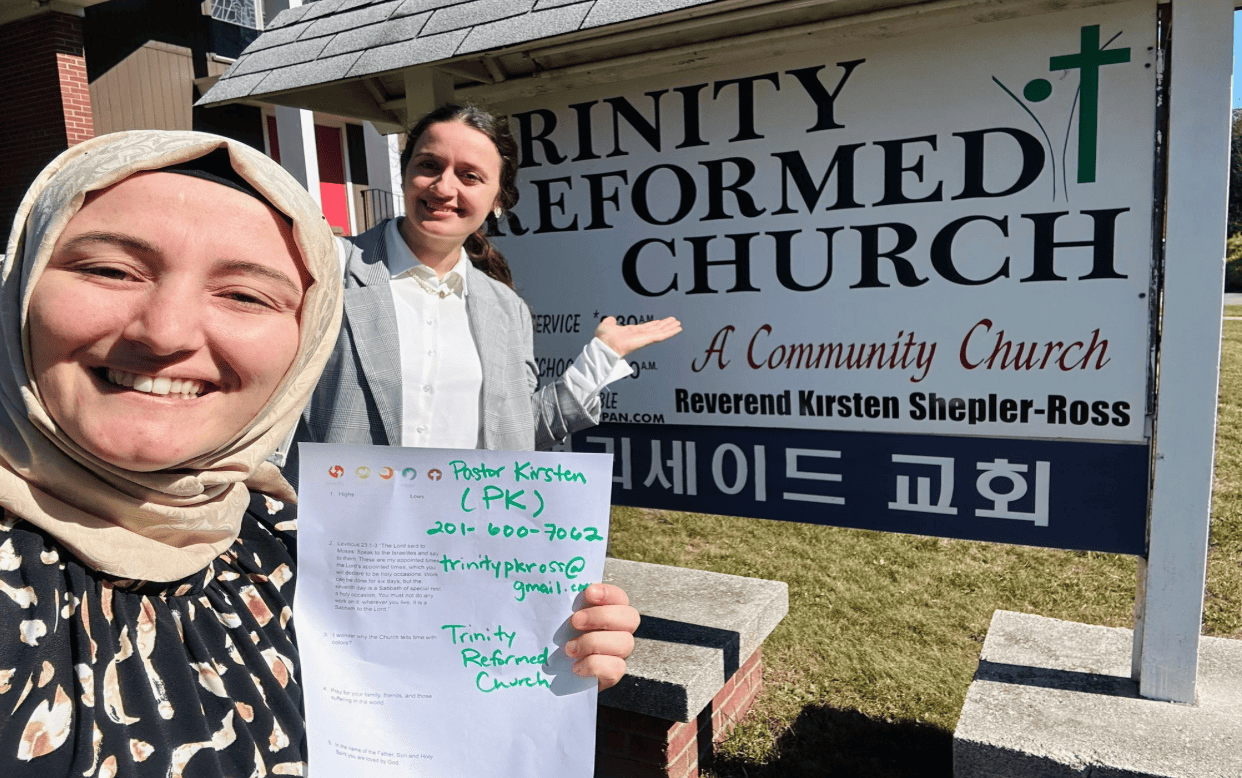 TRINITY
REFORMED
CHURCH
SERVICE
A.M.
A.M.
PAN.COM
A Community Church
Reverend Kirsten Shepler-Ross
리세이드 교회
Pastor Kirsten
(PK)
201-600-7062
trinitypkross@
gmail.co
Trinity
Reformed
Church
1. Highs Lows
2. Leviticus 23:1-3 "The Lord said to
Moses, Speak to the Israelites and say
to them: These are my appointed times,
the Lord's appointed times, which you
will declare to be holy occasions. Work
can be done for six days, but the
seventh day is a Sabbath of special rest,
a holy occasion. You must not do any
work on it; wherever you live, it is a
Sabbath to the Lord."
3. I wonder why the Church tells time with
colors?
4. Pray for your family, friends, and those
suffering in the world.
5. In the name of the Father, Son and Holy
Spirit you are loved by God.